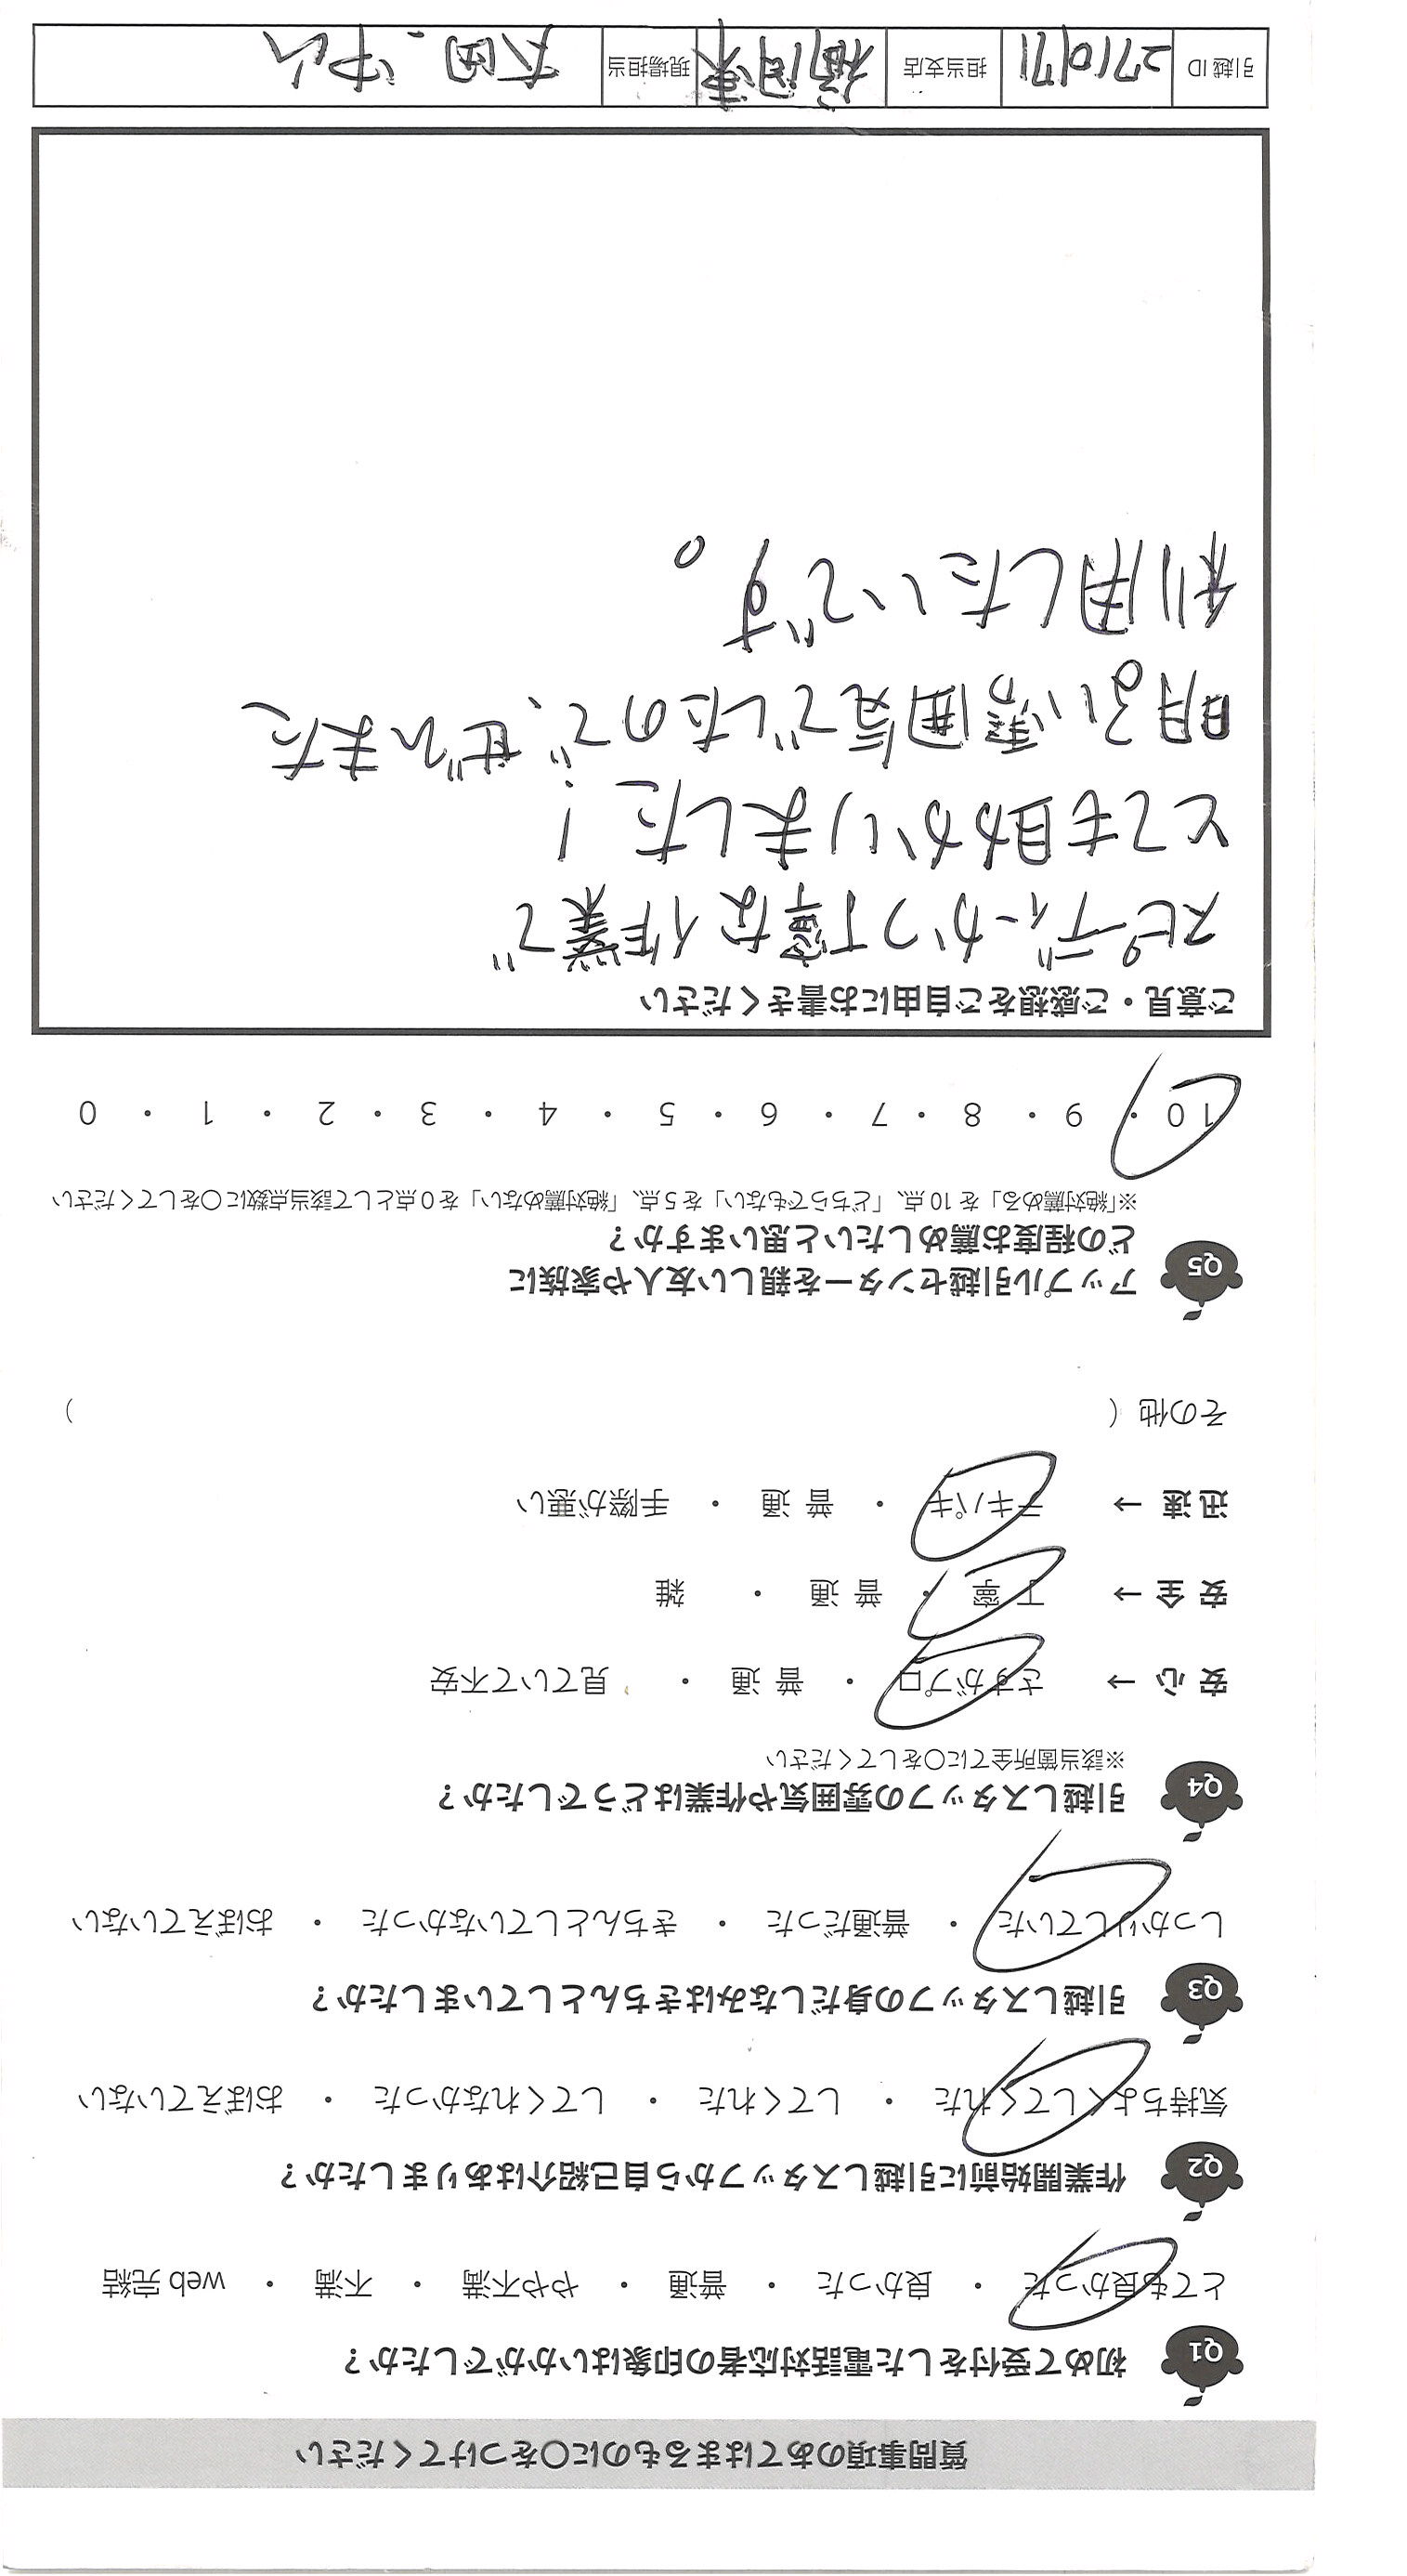 質問事項のあてはまるものに〇をつけてください
Q1 初めて受付をした電話対応者の印象はいかがでしたか?
とても良かった ・ 良かった ・ 普通 ・ やや不満 ・ 不満 ・ web 完結
Q2 作業開始前に引越しスタッフから自己紹介はありましたか?
気持ちよくしてくれた ・ してくれた ・ してくれなかった ・ おぼえていない
Q3 引越しスタッフの身だしなみはきちんとしていましたか?
しっかりしていた ・ 普通だった ・ きちんとしていなかった ・ おぼえていない
Q4 引越しスタッフの雰囲気や作業はどうでしたか?
※該当箇所全てに〇をしてください
安 心 → さすがプロ ・ 普 通 ・ 見ていて不安
安 全 → 丁 寧 ・ 普 通 ・ 雑
迅 速 → テキパキ ・ 普 通 ・ 手際が悪い
その他 ( )
Q5 アップル引越センターを親しい友人や家族に
どの程度お薦めしたいと思いますか?
※「絶対薦める」を 10 点、「どちらでもない」を 5 点、「絶対薦めない」を 0 点として該当点数に〇をしてください
10 ・ 9 ・ 8 ・ 7 ・ 6 ・ 5 ・ 4 ・ 3 ・ 2 ・ 1 ・ 0
ご意見・ご感想をご自由にお書きください
スピーディーかつ丁寧な作業で
とても助かりました!
明るい雰囲気でしたので、ぜひまた
利用したいです。
引越 ID 2710171 担当支店 福岡東 現場担当 太田、中山